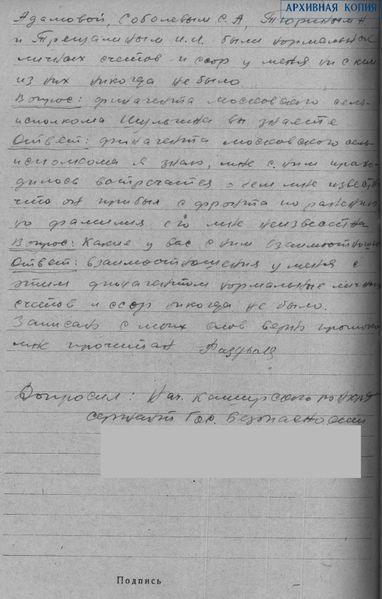 АРХИВНАЯ КОПИЯ
Адамовой, Соболевым С. А,
и Прещалиным И.И. были нормальные
личных счетов и ссор у меня ни с кем
из них никогда не было
Вопрос: финагента московского сель-
исполкома вы знаете
Ответ: финагента московского сель-
исполкома я знаю, мне с ним прихо
дилось встречатся о нем мне известно
что он прибыл с фронта по ранению
но фамилия его мне неизвестна
Вопрос: Какие у вас с ним взаимоотношен
Ответ: взаимоотношения у меня с
этим финагентом нормальные личных
счетов и ссор никогда не было.
Записано с моих слов верно
мне прочитан
Допросил: Нач. Каширского
сержант Гос. Безопасности
Подпись